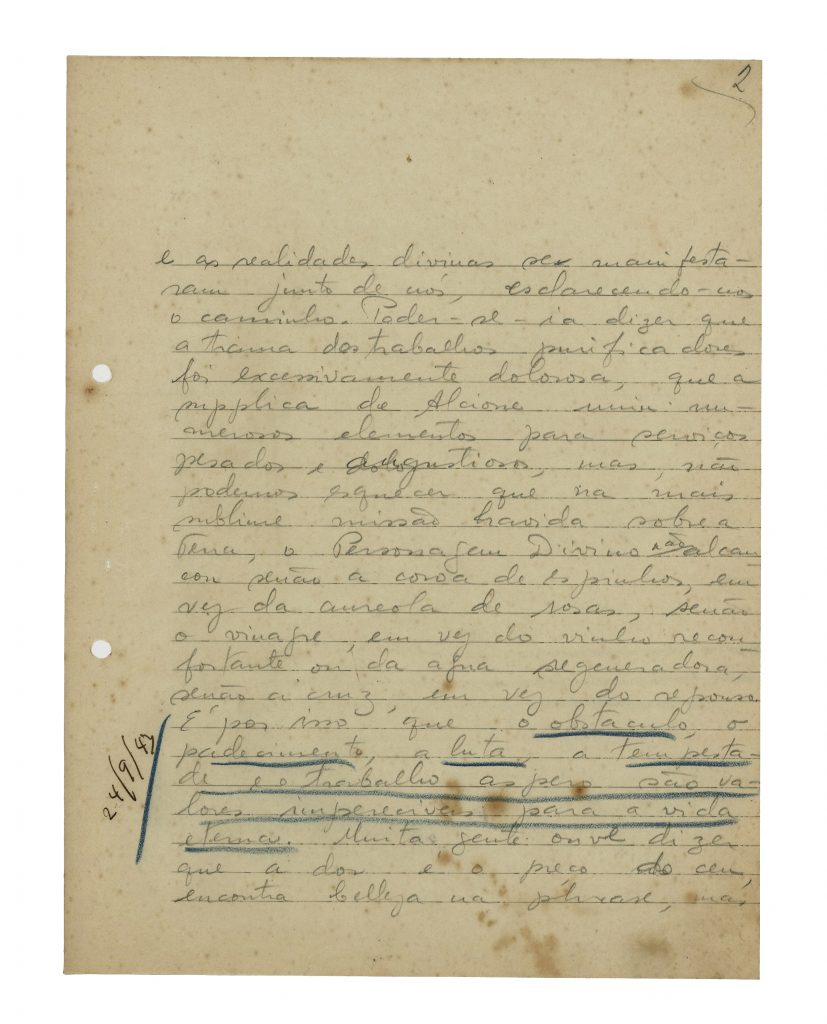 2
e as realidades divinas se manifesta-
ram junto de nós, esclarecendo-nos
o caminho. Poder-se-ia dizer que
a trama dos trabalhos purificadores
foi excessivamente dolorosa, que a
supplica de Alcione uniu nu-
merosos elementos para serviços
pesados e angustiosos, mas, não
podemos esquecer que na mais
sublime missão havida sobre a
Terra, o Personagem Divino não alcan
çou senão a coroa de espinhos, em
vez da aureola de rosas, senão
o vinagre, em vez do vinho recon
fortante ou da agua regeneradora,
senão a cruz, em vez do repouso
É por isso que o obstaculo, o
padecimento, a luta, a tempesta-
de e o trabalho aspero são va-
lores impereciveis para a vida
eterna. Muita gente ouve dizer
que a dor e o preço do ceu,
encontra belleza na phrase, mas
24/9/47